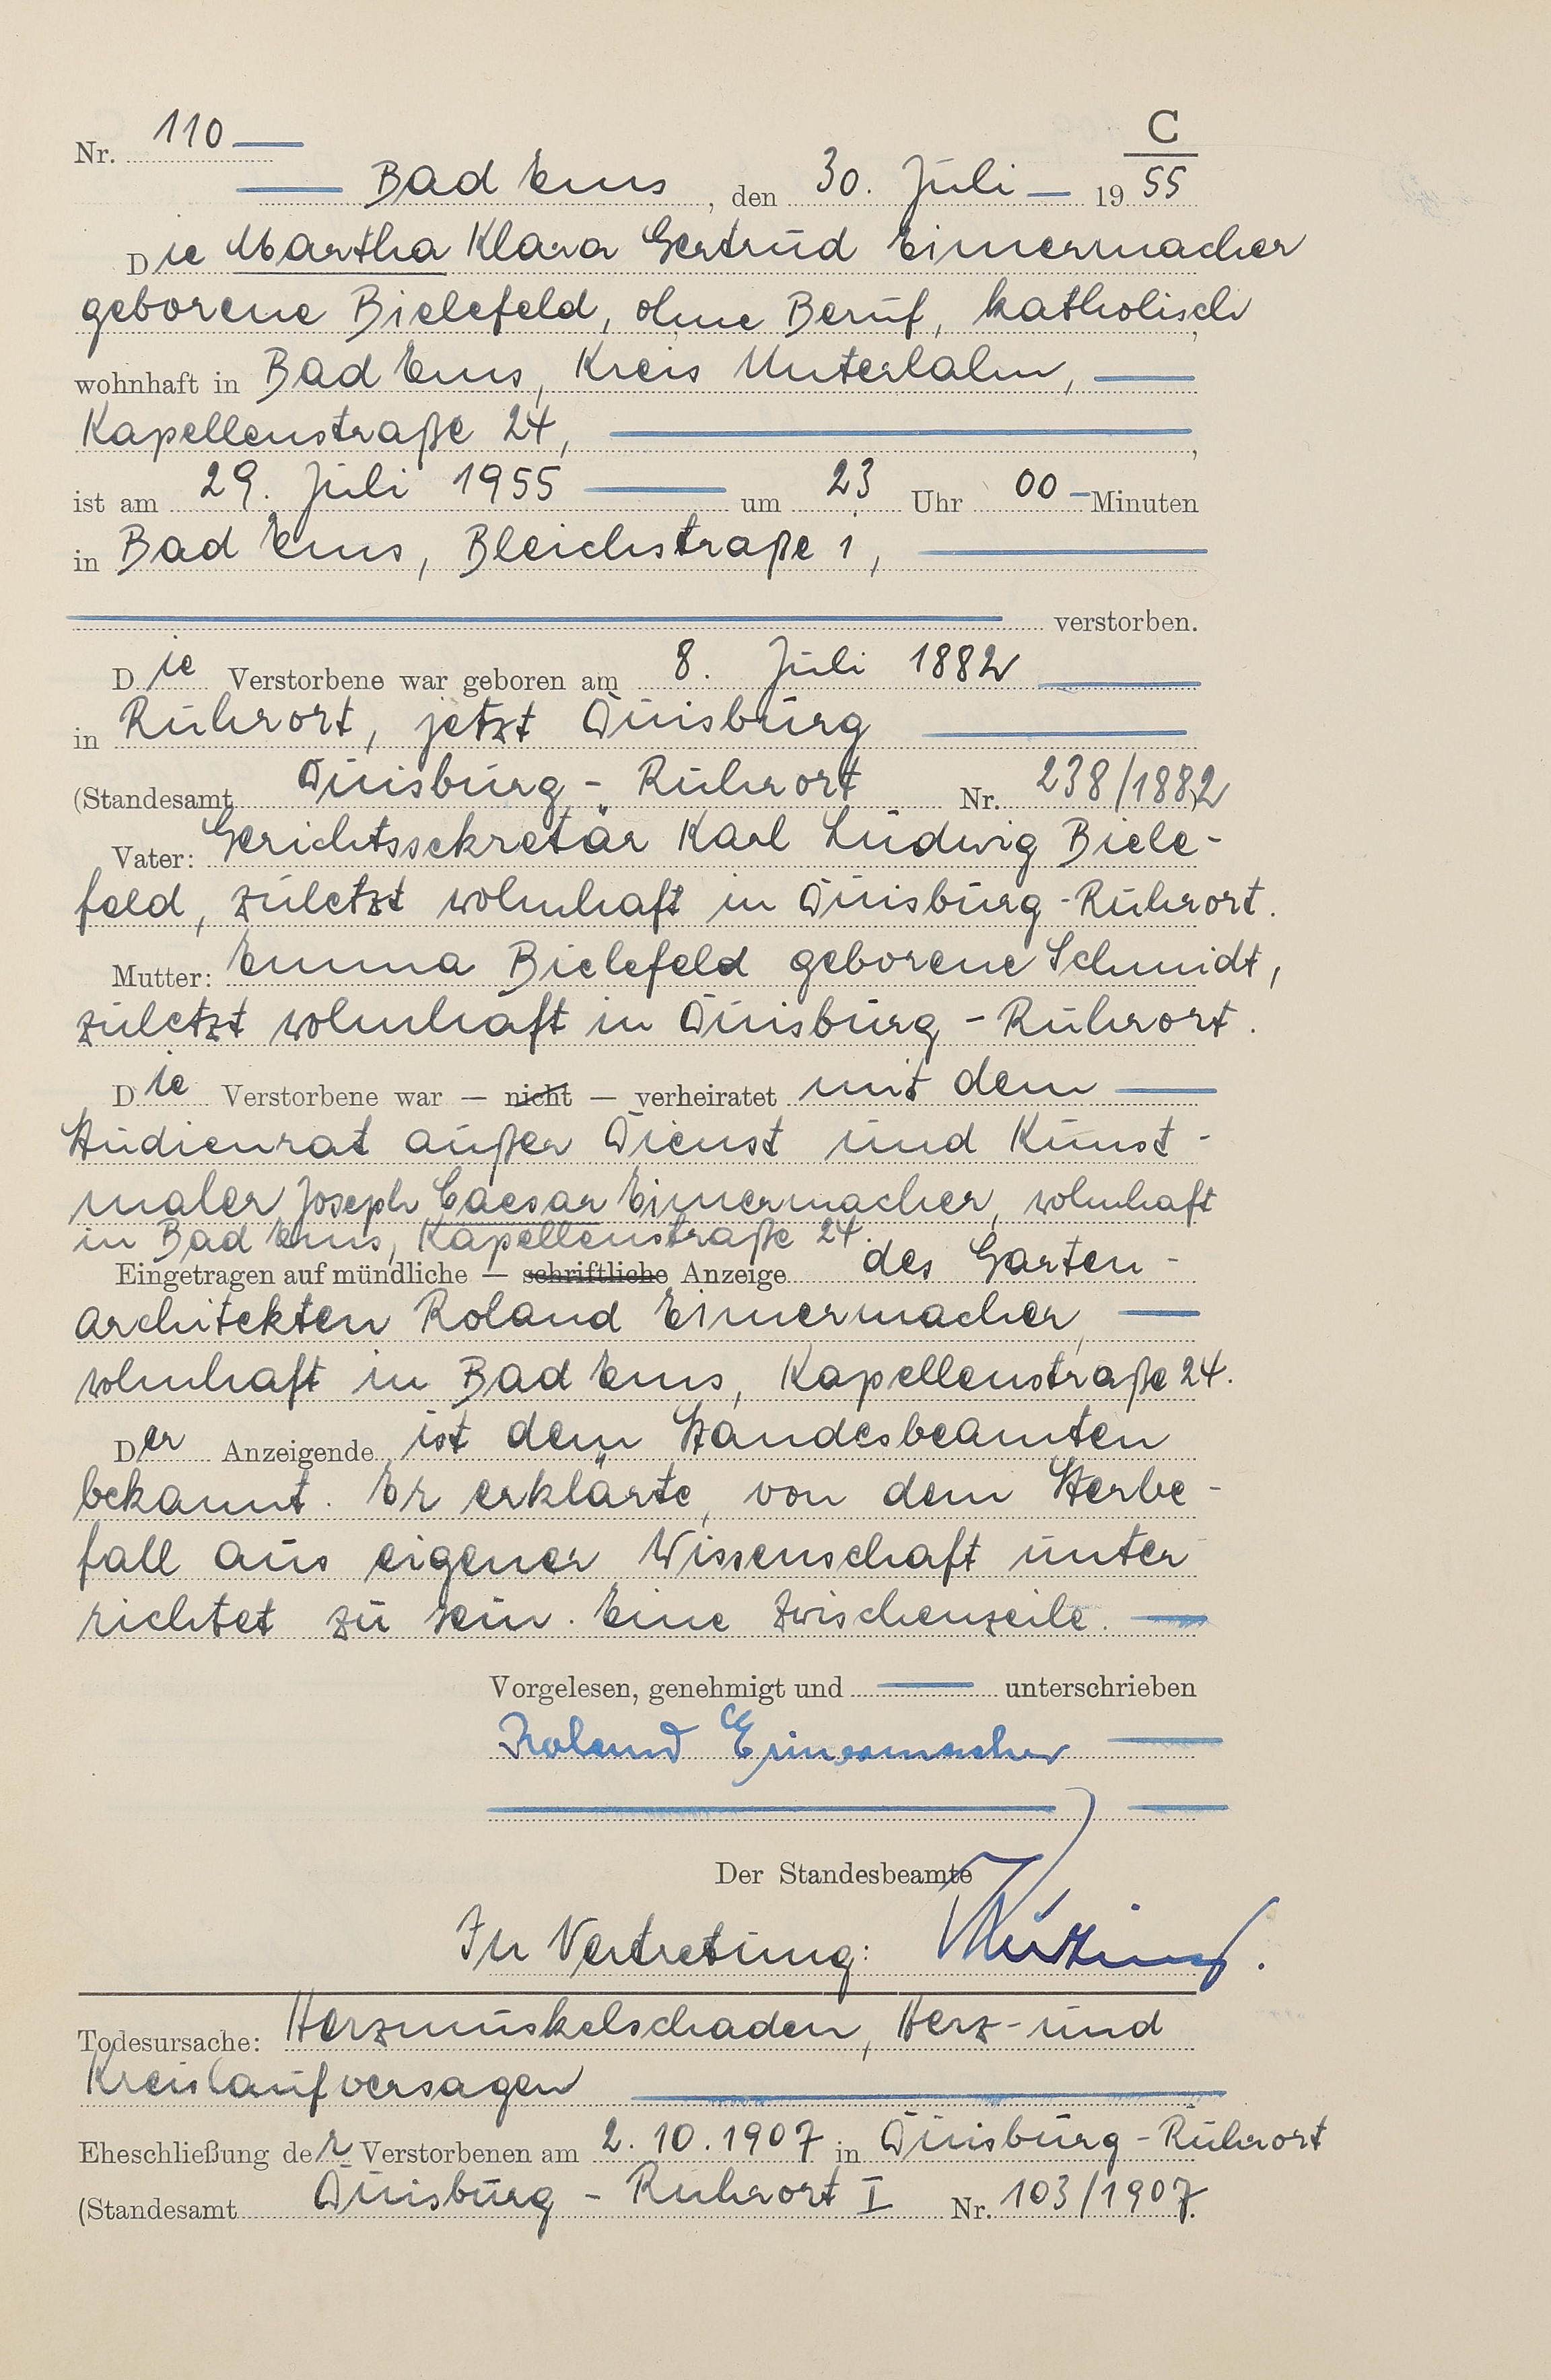 C
Nr. 110
Bad Ems, den 30. Juli 1955
Die Martha Klara Gertrud Eimermacher
geborene Bielefeld, ohne Beruf, katholisch,
wohnhaft in Bad Ems, Kreis Unterlahn,
Kapellenstraße 24,
ist am 29. Juli 1955 um 23 Uhr 00 Minuten
in Bad Ems, Bleichstraße 1,
verstorben.
Die Verstorbene war geboren am 8. Juli 1882
in Ruhrort, jetzt Duisburg
(Standesamt Duisburg-Ruhrort Nr. 238/1882)
Vater: Gerichtssekretär Karl Ludwig Biele-
feld, zuletzt wohnhaft in Duisburg-Ruhrort.
Mutter: Emma Bielefeld geborene Schmidt,
zuletzt wohnhaft in Duisburg-Ruhrort.
Die Verstorbene war — nicht — verheiratet mit dem
Studienrat außer Dienst und Kunst-
maler Joseph Caesar Eimermacher, wohnhaft
in Bad Ems, Kapellenstraße 24.
Eingetragen auf mündliche — schriftliche Anzeige des Garten-
architekten Roland Eimermacher,
wohnhaft in Bad Ems, Kapellenstraße 24.
Der Anzeigende ist dem Standesbeamten
bekannt. Er erklärte, von dem Sterbe-
fall aus eigener Wissenschaft unter
richtet zu sein. Eine Zwischenzeile.
Vorgelesen, genehmigt und unterschrieben
Roland Eimermacher
Der Standesbeamte
In Vertretung:
Todesursache: Herzmuskelschaden, Herz- und
Kreislaufversagen
Eheschließung der Verstorbenen am 2.10.1907 in Duisburg-Ruhrort
(Standesamt Duisburg-Ruhrort I Nr. 103/1907.